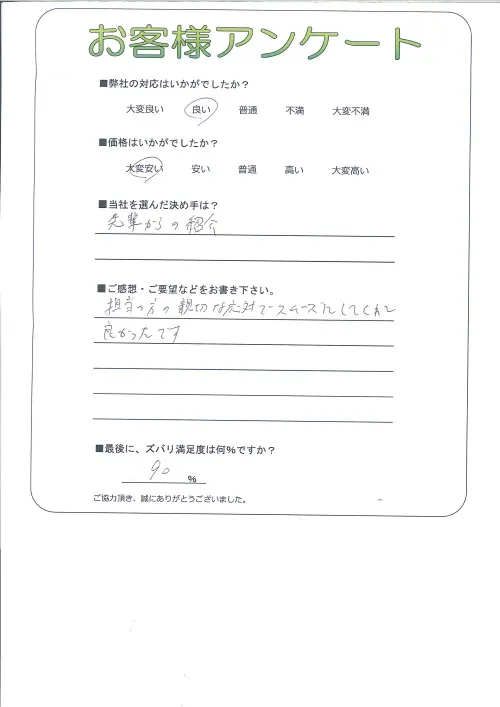 お客様アンケート
■弊社の対応はいかがでしたか？
大変良い 良い 普通 不満 大変不満
■価格はいかがでしたか？
大変安い 安い 普通 高い 大変高い
■当社を選んだ決め手は？
先輩からの紹介
■ご感想・ご要望などをお書き下さい。
担当の方の親切な応対でスムーズにしてくれて
良かったです
■最後に、ズバリ満足度は何％ですか？
90 ％
ご協力頂き、誠にありがとうございました。